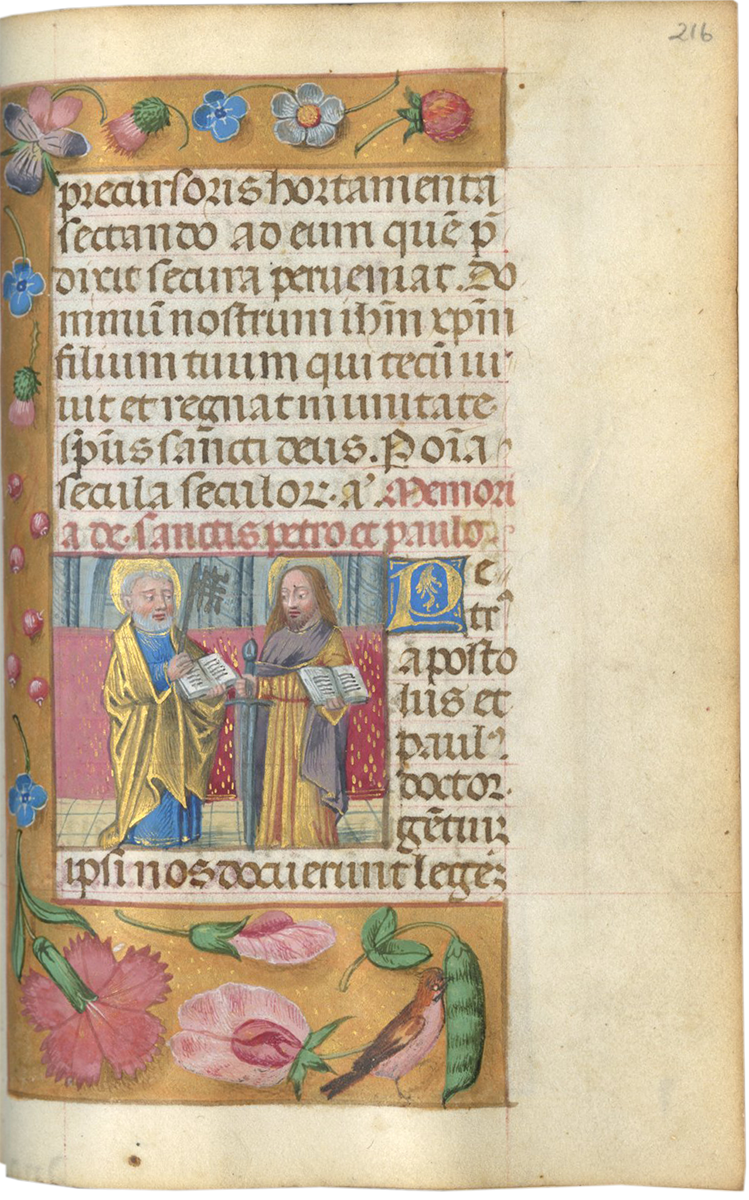 216
precursoris hortamenta
sectando ad eum quē p̄
dixit secura perueniat. Do
minuū nostrum ihm̄ xpm̄
filium tuum qui tecū ui
uit et regnat in unitate
sp̄us sancti deus. P oīa
secula seculor. a’. Memori
a de sanctis petro et paulo.
Pe
tr⁹
aposto
lus et
paul⁹.
doctor
gētiuz
ipsi nos docuerunt legēz